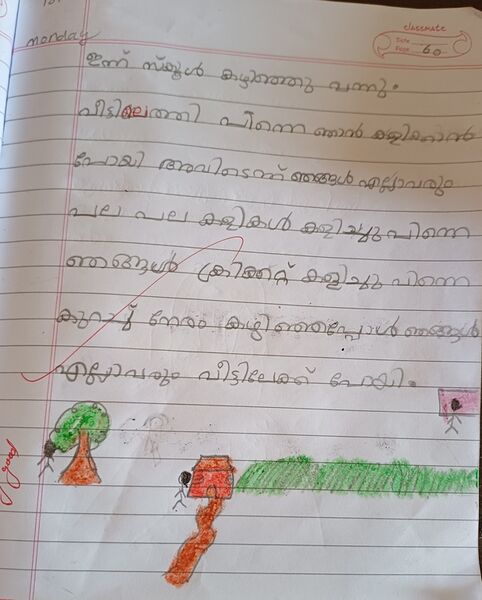 classmate
Date
Page 60
monday
ഇന്ന് സ്കൂൾ കഴിഞ്ഞു വന്നു.
വീട്ടിലെത്തി പിന്നെ ഞാൻ കളിക്കാൻ
പോയി അവിടെന്ന് ഞങ്ങൾ എല്ലാവരും
പല പല കളികൾ കളിച്ചു പിന്നെ
ഞങ്ങൾ ക്രിക്കറ്റ് കളിച്ചു പിന്നെ
കുറച്ച് നേരം കഴിഞ്ഞപ്പോൾ ഞങ്ങൾ
എല്ലാവരും വീട്ടിലേക്ക് പോയി.
good